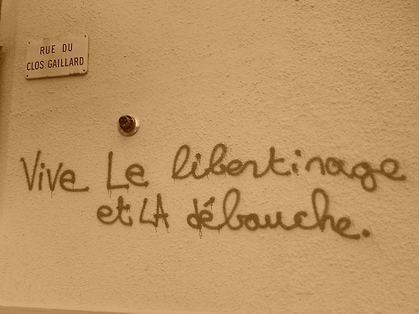 RUE DU
CLOS GAILLARD
Vive Le libertinage
et LA débauche.